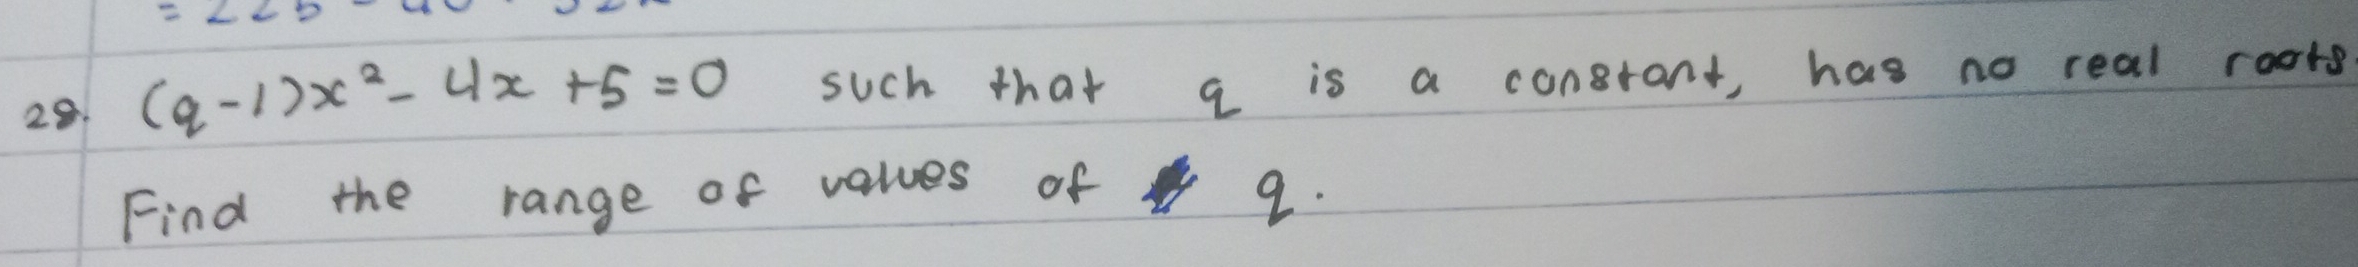 29. (q-1)x² - 4x + 5 = 0 such that q is a constant, has no real roots.
Find the range of values of q.